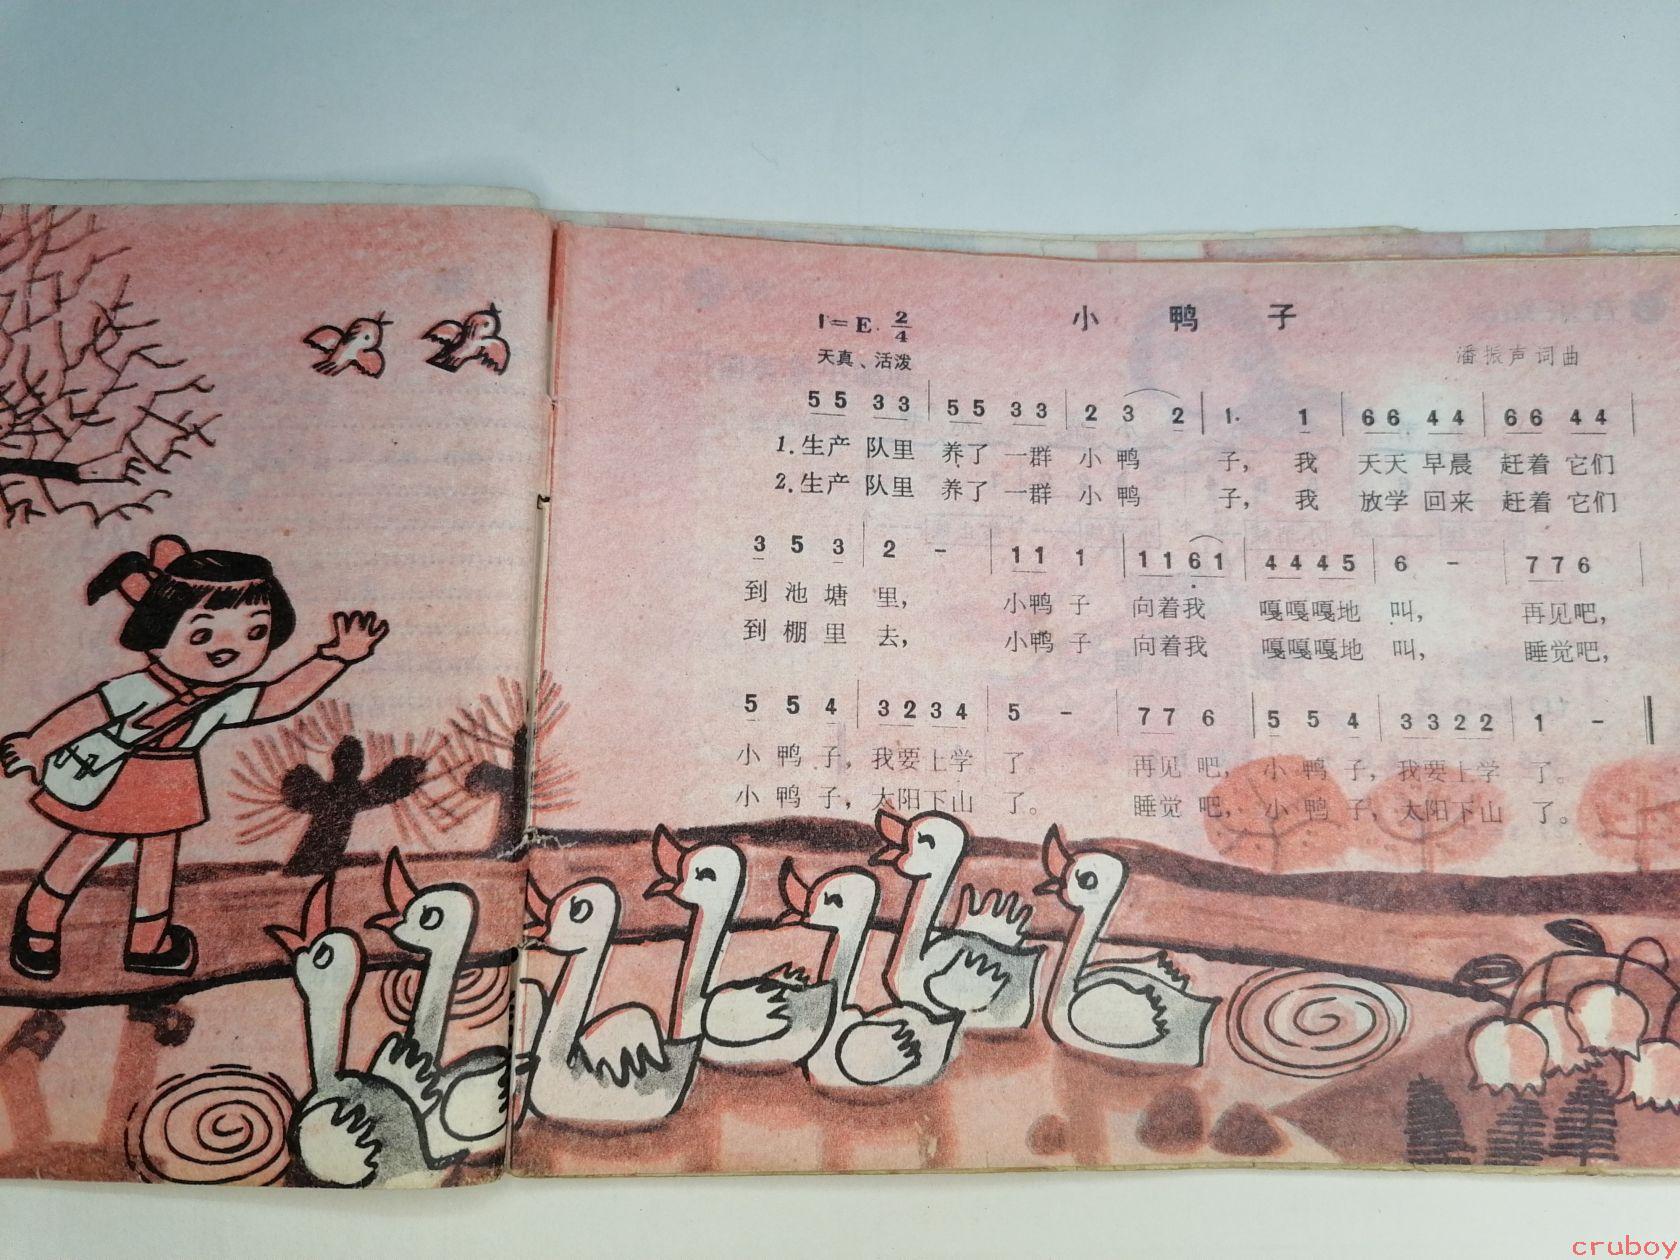 小鸭子
1=E 2/4
天真、活泼
潘振声词曲
5 5 3 3 | 5 5 3 3 | 2 3 2 | 1. 1 | 6 6 4 4 | 6 6 4 4 |
1.生产 队里 养了 一群 小 鸭 子， 我 天天 早晨 赶着 它们
2.生产 队里 养了 一群 小 鸭 子， 我 放学 回来 赶着 它们
3 5 3 | 2 - | 1 1 1 | 1 1 6 1 | 4 4 4 5 | 6 - | 7 7 6 |
到 池 塘 里， 小鸭 子 向着我 嘎嘎嘎地 叫， 再见吧，
到 棚 里 去， 小鸭 子 向着我 嘎嘎嘎地 叫， 睡觉吧，
5 5 4 | 3 2 3 4 | 5 - | 7 7 6 | 5 5 4 | 3 3 2 2 | 1 - ‖
小 鸭 子，我要上学 了。 再见 吧， 小 鸭 子，我要上学 了。
小 鸭 子，太阳下山 了。 睡觉 吧， 小 鸭 子，太阳下山 了。
cruboy